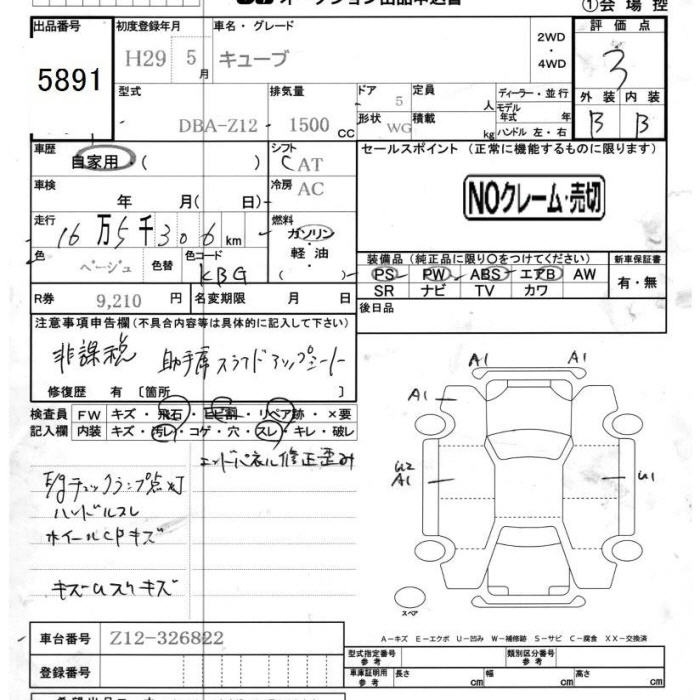 オークション出品申込書
①会場控
出品番号 初度登録年月 車名・グレード 評価点
5891 H29 5月 キューブ 2WD・4WD 3
型式 排気量 ドア 定員 ディーラー・並行 外装 内装
DBA-Z12 1500 CC 5 人 モデル年式 年 B B
形状 WG 積載 kg ハンドル 左・右
車歴 自家用・( ) シフト CAT セールスポイント (正常に機能するものに限ります)
車検 年 月( 日) 冷房 AC NOクレーム・売切
走行 16万5千306km 燃料 ガソリン・軽油 ( )
色 ベージュ 色替 色コード KBG
装備品 (純正品に限り○をつけてください) 新車保証書
PS PW ABS・エアB AW 有・無
SR ナビ TV カワ
R券 9,210 円 名変期限 月 日 後日品
注意事項申告欄 (不具合内容等は具体的に記入して下さい)
非課税 助手席スライドアップシート
修復歴 有 [箇所 ]
検査員 FW キズ・飛石・ヒビ割・リペア跡・×要
記入欄 内装 キズ・汚レ・コゲ・穴・スレ・キレ・破レ
エンドパネル修正歪み
E/gチェックランプ点灯
ハンドルスレ
ホイールCPキズ
キズUスリキズ
A1 A1
A1
U2 A1 U1
スペア
A-キズ E-エクボ U-凹み W-補修跡 S-サビ C-腐食 XX-交換済
車台番号 Z12-326822
型式指定番号 参考 類別区分番号 参考
登録番号 車庫証明用 参考 長さ cm 幅 cm 高さ cm